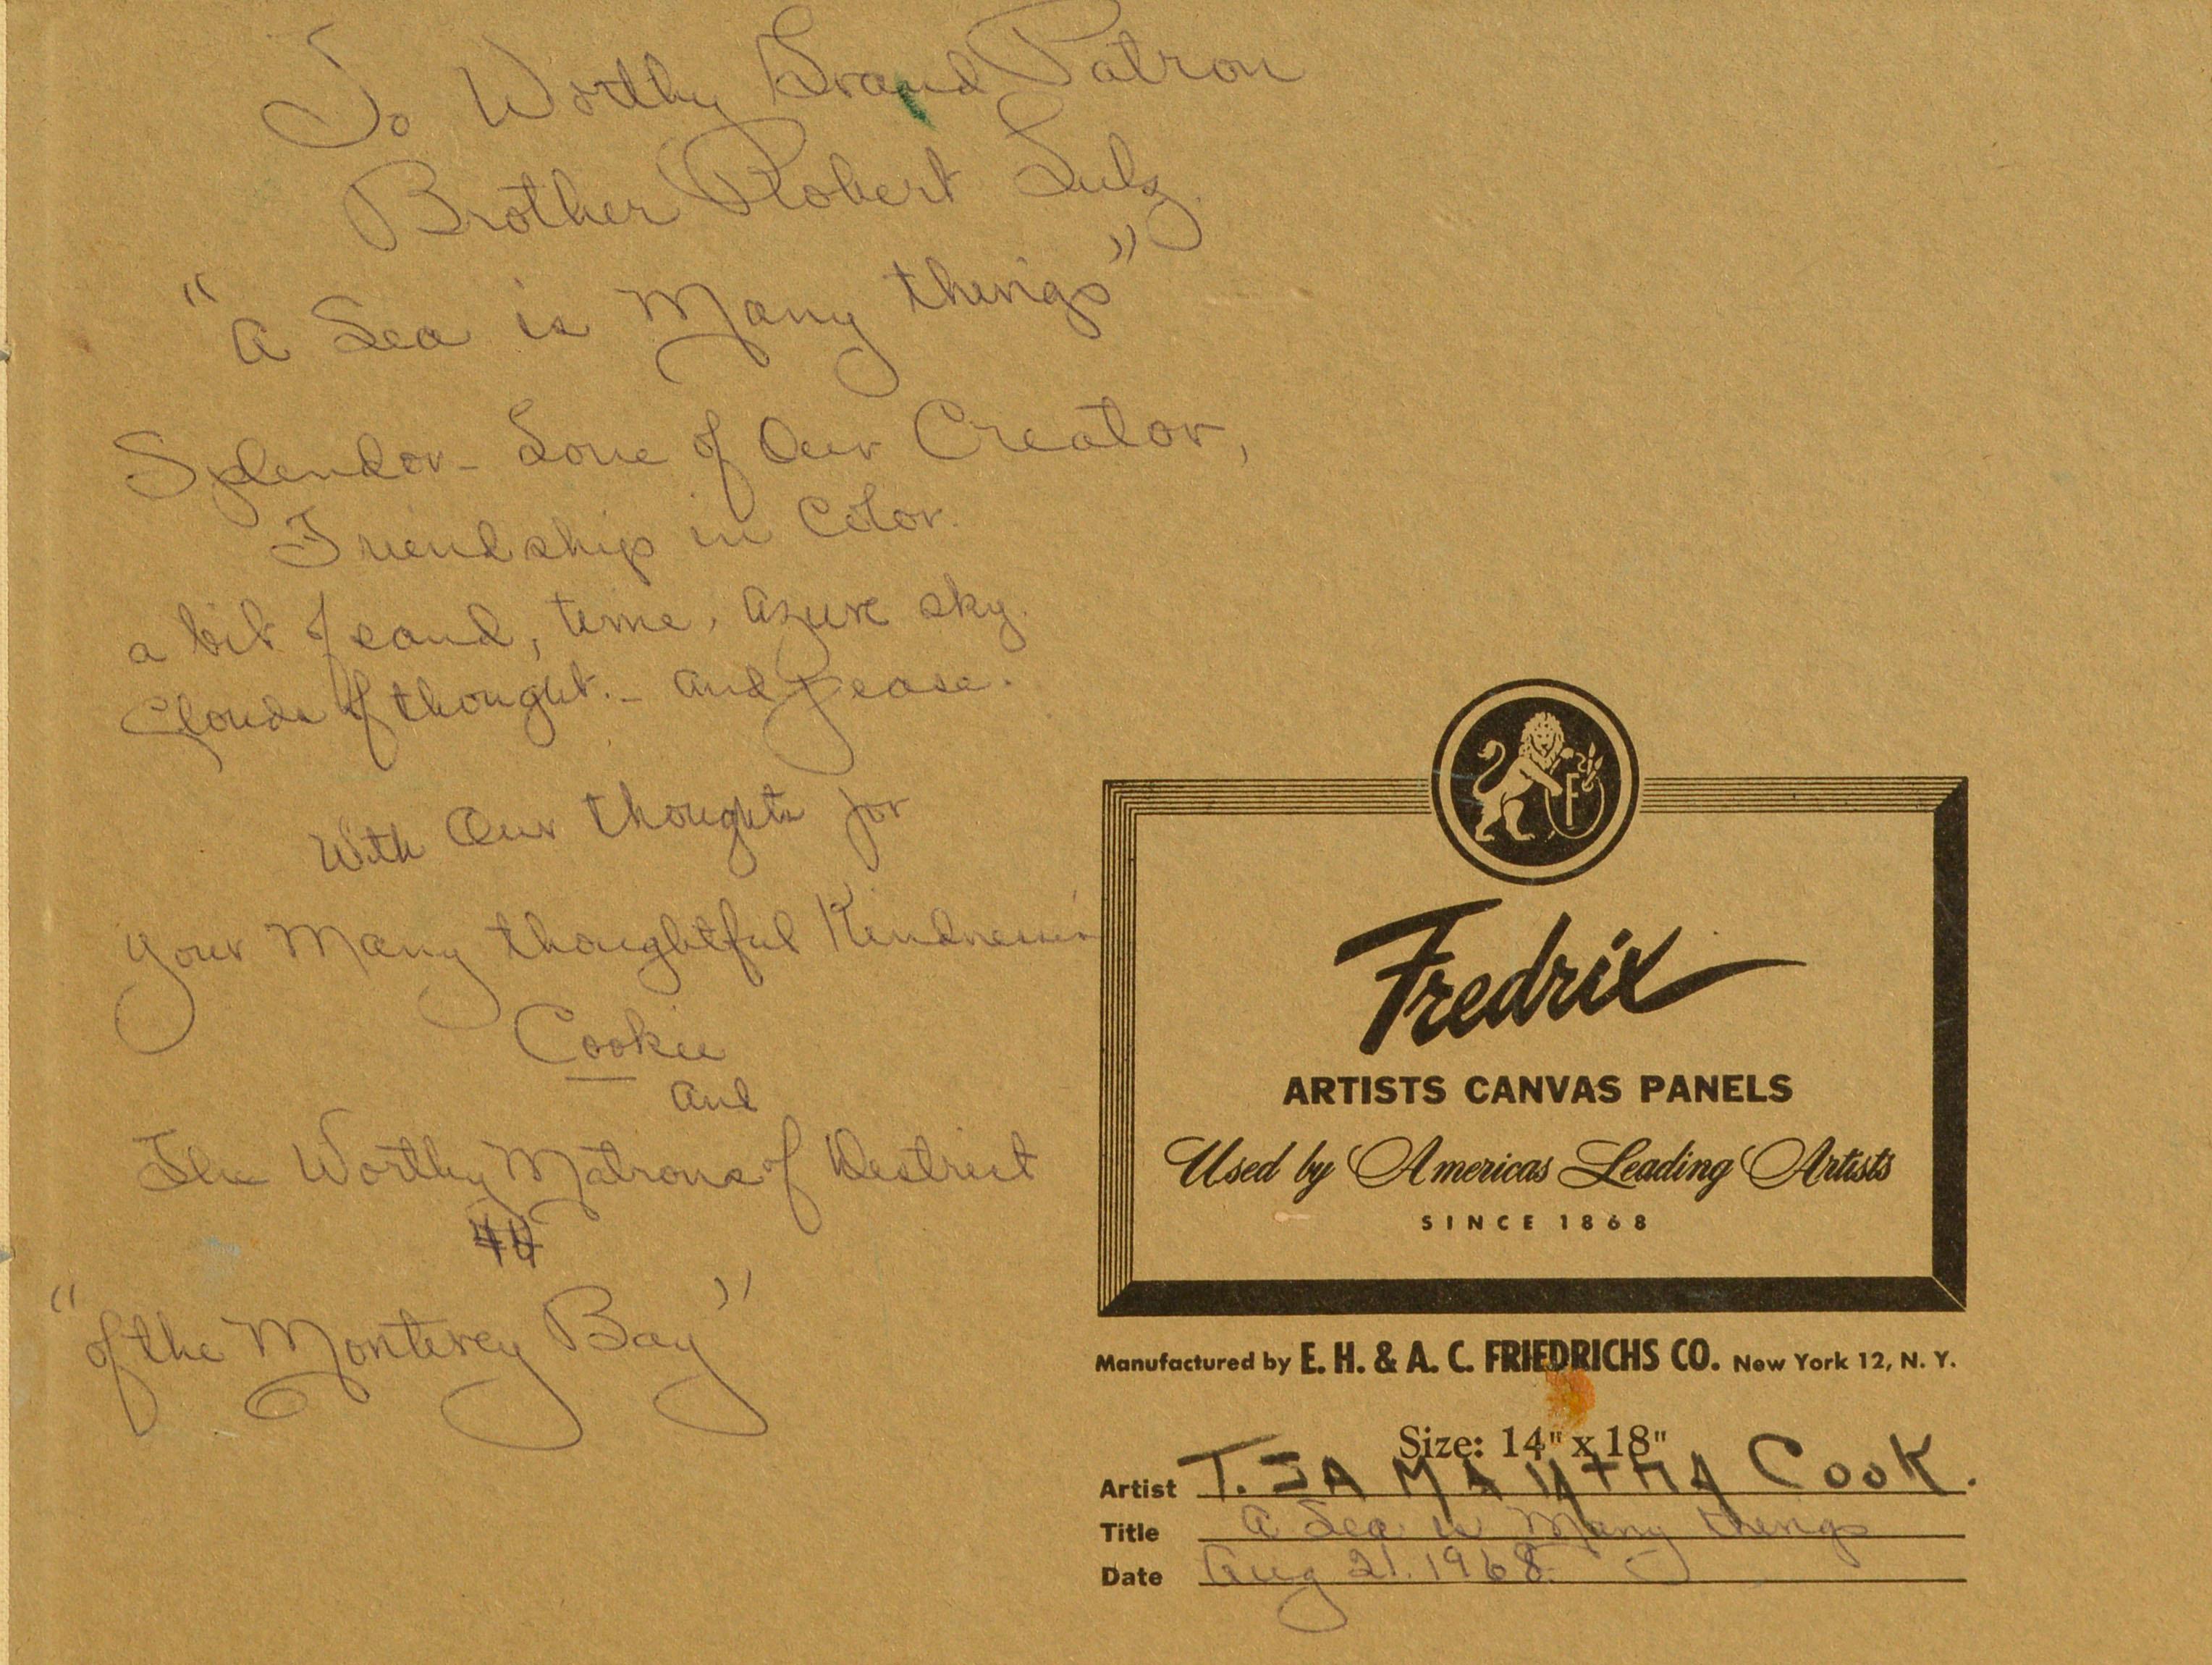 To Worthy Grand Patron
Brother Robert Lulz.
"A Sea is Many things"
Splendor - Love of Our Creator,
Friendship in Color.
a bit of sand, time, azure sky.
Clouds of thought. - and peace.
With Our thoughts for
your Many thoughtful Kindnesses
Cookie
and
The Worthy Matrons of District
44
"of the Monterey Bay"
F
Fredrix
ARTISTS CANVAS PANELS
Used by Americas Leading Artists
SINCE 1868
Manufactured by E. H. & A. C. FRIEDRICHS CO. New York 12, N. Y.
Size: 14" x 18"
Artist T. SAMANTHA COOK.
Title A Sea is Many things
Date Aug 21. 1968.